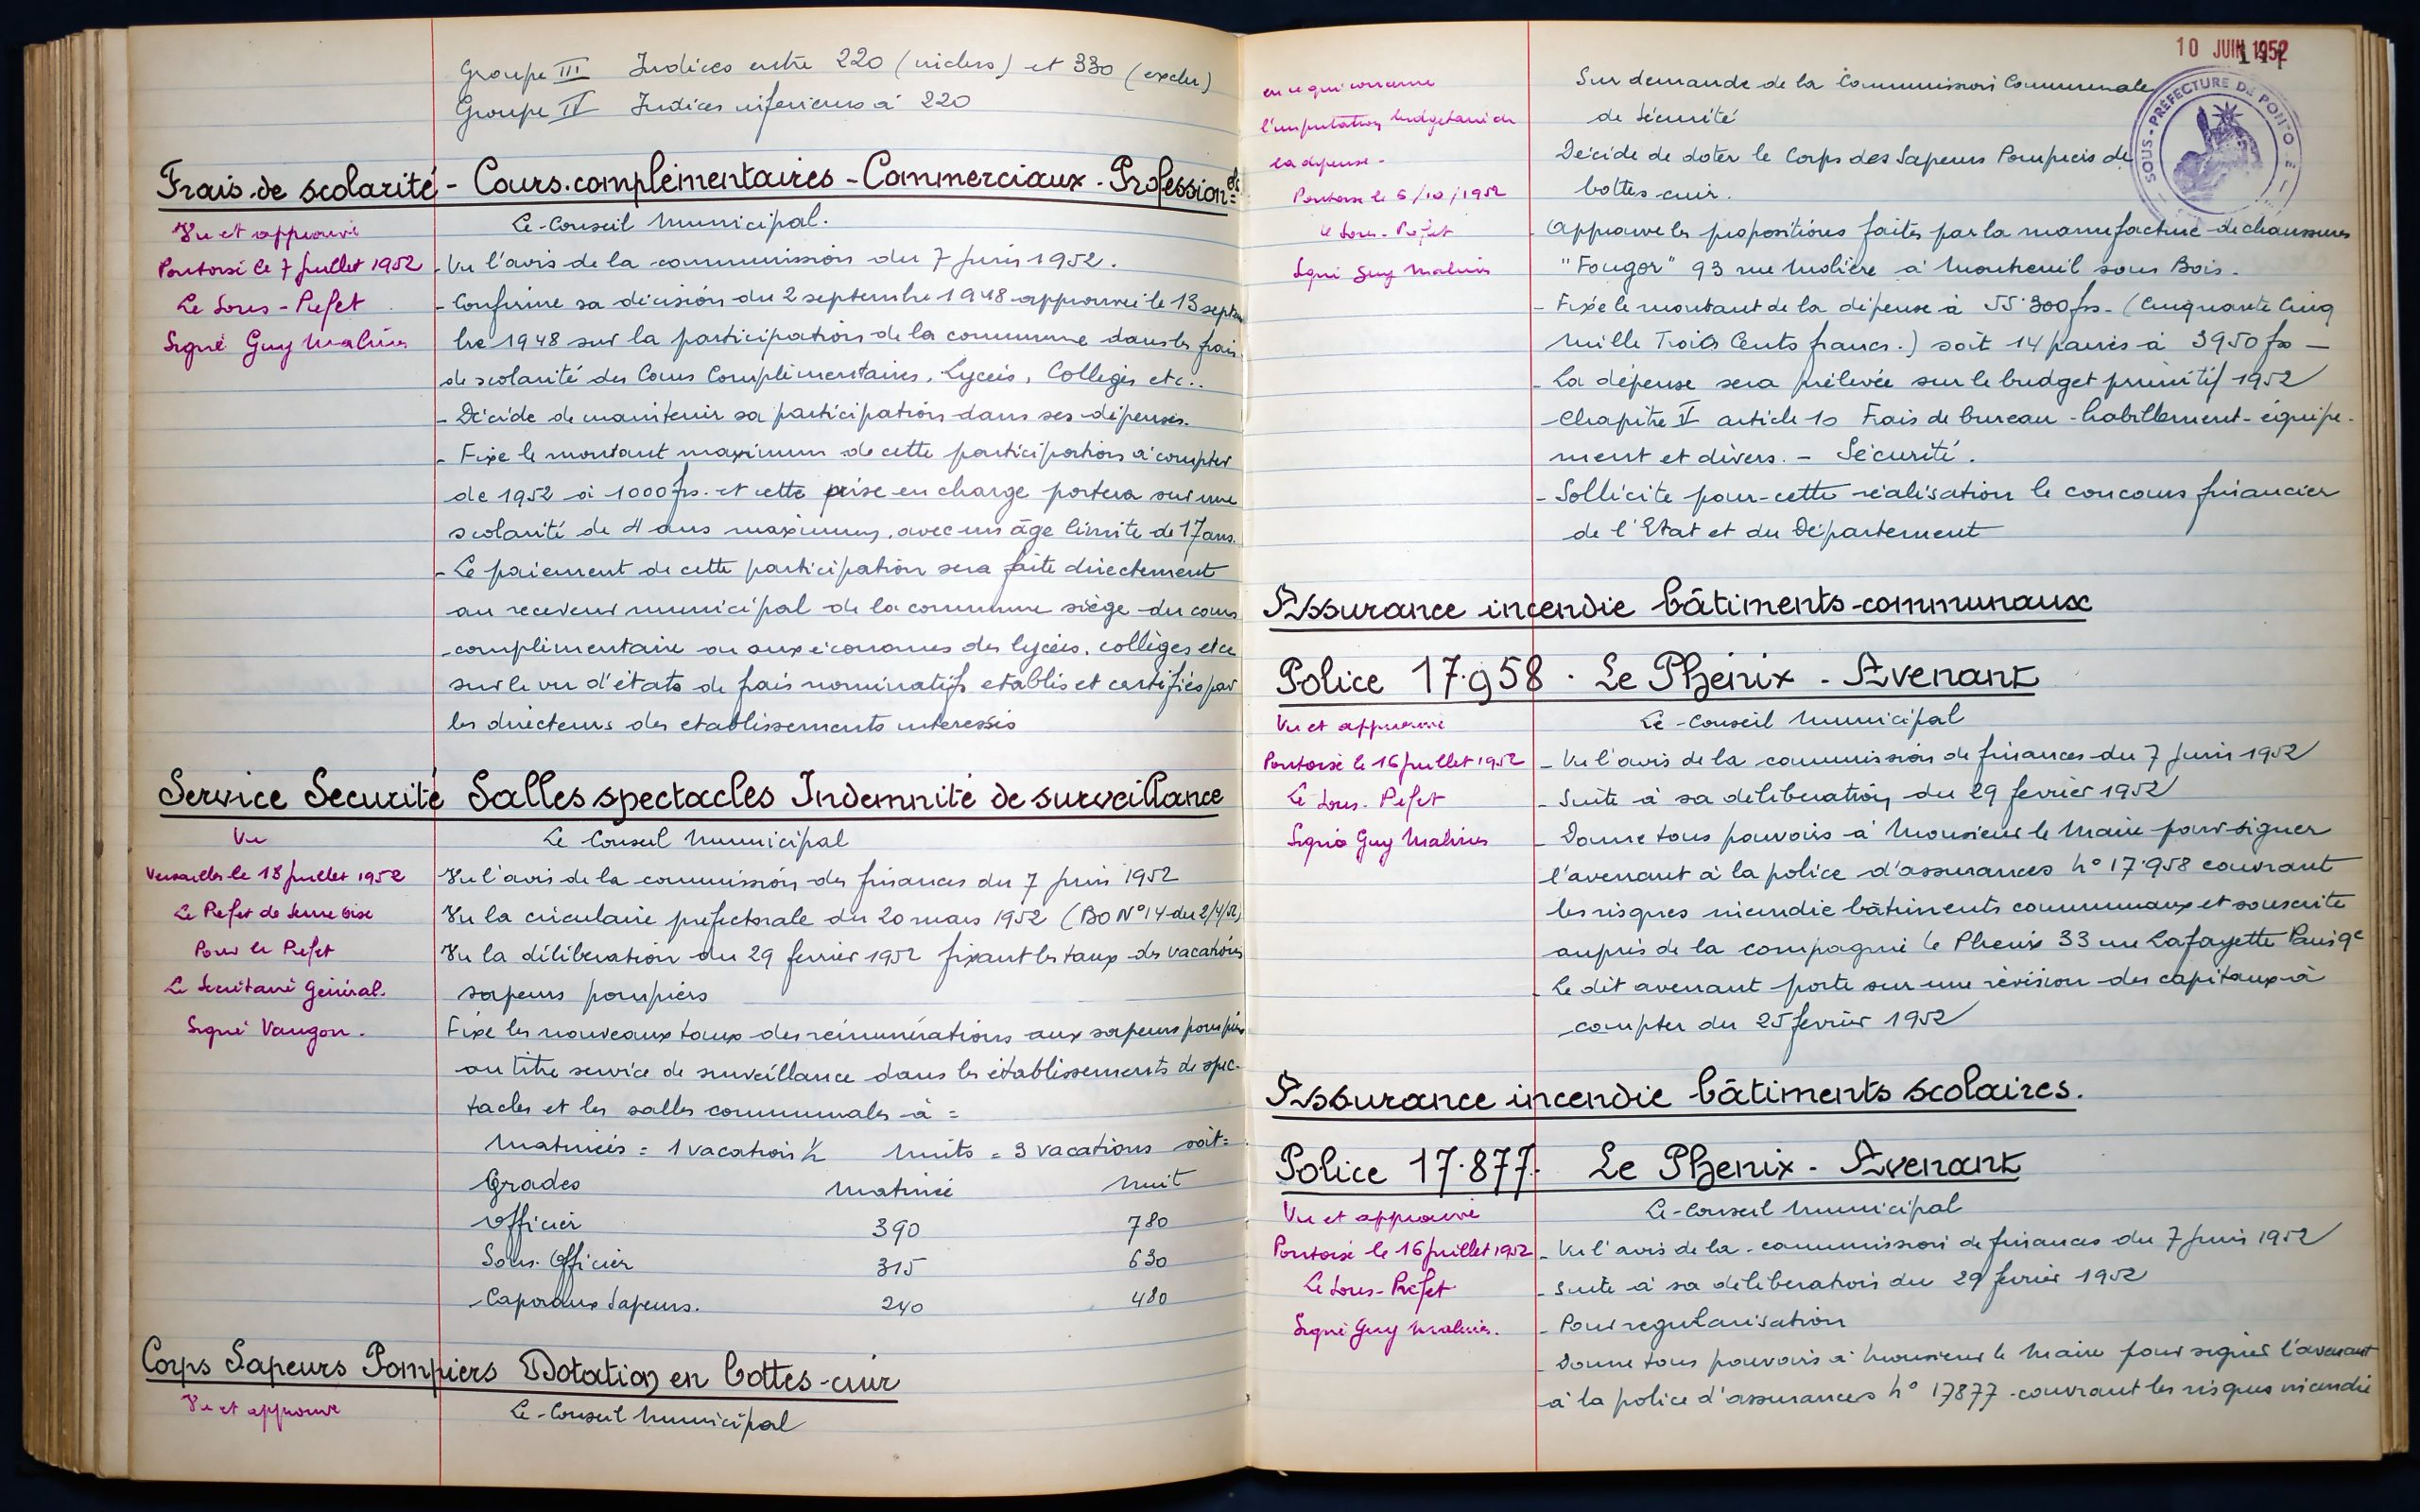 Groupe III Indices entre 220 (inclus) et 330 (exclu)
Groupe IV Indices inferieurs à 220
Frais de scolarité - Cours complémentaires - Commerciaux - Professionels
Vu et approuvé
Pontoise le 7 Juillet 1952
Le Sous-Préfet
Signé Guy Malines
Le Conseil Municipal.
- Vu l'avis de la commission du 7 Juin 1952.
- Confirme sa décision du 2 septembre 1948 approuvée le 13 septem
bre 1948 sur la participation de la commune dans les frais
de scolarité des Cours Complémentaires, Lycées, Collèges etc..
- Décide de maintenir sa participation dans ses dépenses.
- Fixe le montant maximum de cette participation à compter
de 1952 à 1000 frs. et cette prise en charge portera sur une
scolarité de 4 ans maximum, avec un âge limite de 17 ans.
- Le paiement de cette participation sera faite directement
au receveur municipal de la commune siège du cours
complémentaire ou aux économes des lycées, collèges etc
sur le vu d'états de frais nominatifs etablis et certifiés par
les directeurs des etablissements interessés
Service Securité Salles spectacles Indemnité de surveillance
Vu
Versailles le 18 Juillet 1952
Le Prefet de Seine Oise
Pour le Prefet
Le Secrétaire Général.
Signé Vaugon.
Le Conseil Municipal
Vu l'avis de la commission des finances du 7 Juin 1952
Vu la circulaire préfectorale du 20 mars 1952 (BO N° 14 du 2/4/52)
Vu la délibération du 29 fevrier 1952 fixant les taux des vacations
sapeurs pompiers
Fixe les nouveaux taux des rémunérations aux sapeurs pompiers
au titre service de surveillance dans les établissements de spec-
tacles et les salles communales à =
Matinées = 1 vacation ½ Nuits = 3 vacations soit =
Grades Matinée Nuit
Officier 390 780
Sous. Officier 315 630
Caporaux Sapeurs. 240 480
Corps Sapeurs Pompiers Dotation en bottes-cuir
Vu et approuvé
Le Conseil Municipal
10 JUIN 1952
SOUS-PRÉFECTURE DE PONTOISE
en ce qui concerne
l'imputation budgétaire de
la dépense -
Pontoise le 6/10/1952
le Sous-Préfet
Signé Guy Malines
Sur demande de la Commission Communale
de Sécurité
Décide de doter le Corps des Sapeurs Pompiers de
bottes cuir.
- Approuve les propositions faites par la manufacture de chaussures
"Fougor" 93 rue Molière à Montreuil sous Bois.
- Fixe le montant de la dépense à 55.300 frs. (Cinquante Cinq
Mille Trois Cents francs.) soit 14 paires à 3950 frs -
- La dépense sera prélevée sur le budget primitif 1952
Chapitre V article 10 Frais de bureau - habillement - équipe-
ment et divers. - Sécurité.
- Sollicite pour cette réalisation le concours financier
de l'Etat et du Département
Assurance incendie bâtiments communaux
Police 17.958 . Le Phénix - Avenant
Vu et approuvé
Pontoise le 16 Juillet 1952
Le Sous-Préfet
Signé Guy Malines
Le Conseil Municipal
- Vu l'avis de la commission de finances du 7 Juin 1952
- Suite à sa délibération du 29 fevrier 1952
- Donne tous pouvoirs à Monsieur le Maire pour signer
l'avenant à la police d'assurances n° 17.958 couvrant
les risques incendie bâtiments communaux et souscrite
auprès de la compagnie le Phenix 33 rue Lafayette Paris 9e
- Le dit avenant porte sur une révision des capitaux à
compter du 25 fevrier 1952
Assurance incendie bâtiments scolaires.
Police 17.877. Le Phenix - Avenant
Vu et approuvé
Pontoise le 16 Juillet 1952
Le Sous-Préfet
Signé Guy Malines.
Le Conseil Municipal
- Vu l'avis de la commission de finances du 7 Juin 1952
- Suite à sa déliberation du 29 fevrier 1952
- Pour regularisation
- Donne tous pouvoirs à Monsieur le Maire pour signer l'avenant
à la police d'assurances n° 17877 couvrant les risques incendie